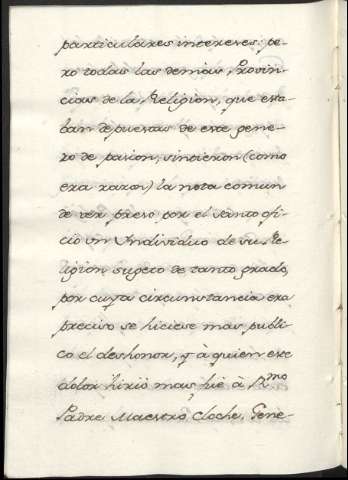 particulares intereses: pe-
ro todas las demas Provin-
cias de la Religion, que esta-
ban depuestas de este gene-
ro de pasion, sintieron (como
era razon) la nota comun
de ver preso por el santo ofi-
cio un Individuo de su Re-
ligion sugeto de tanto grado,
por cuya circunstancia era
preciso se hiciese mas publi-
co el deshonor, y à quien este
dolor hirió mas fué à Rmo
Padre Maestro Cloche, Gene-